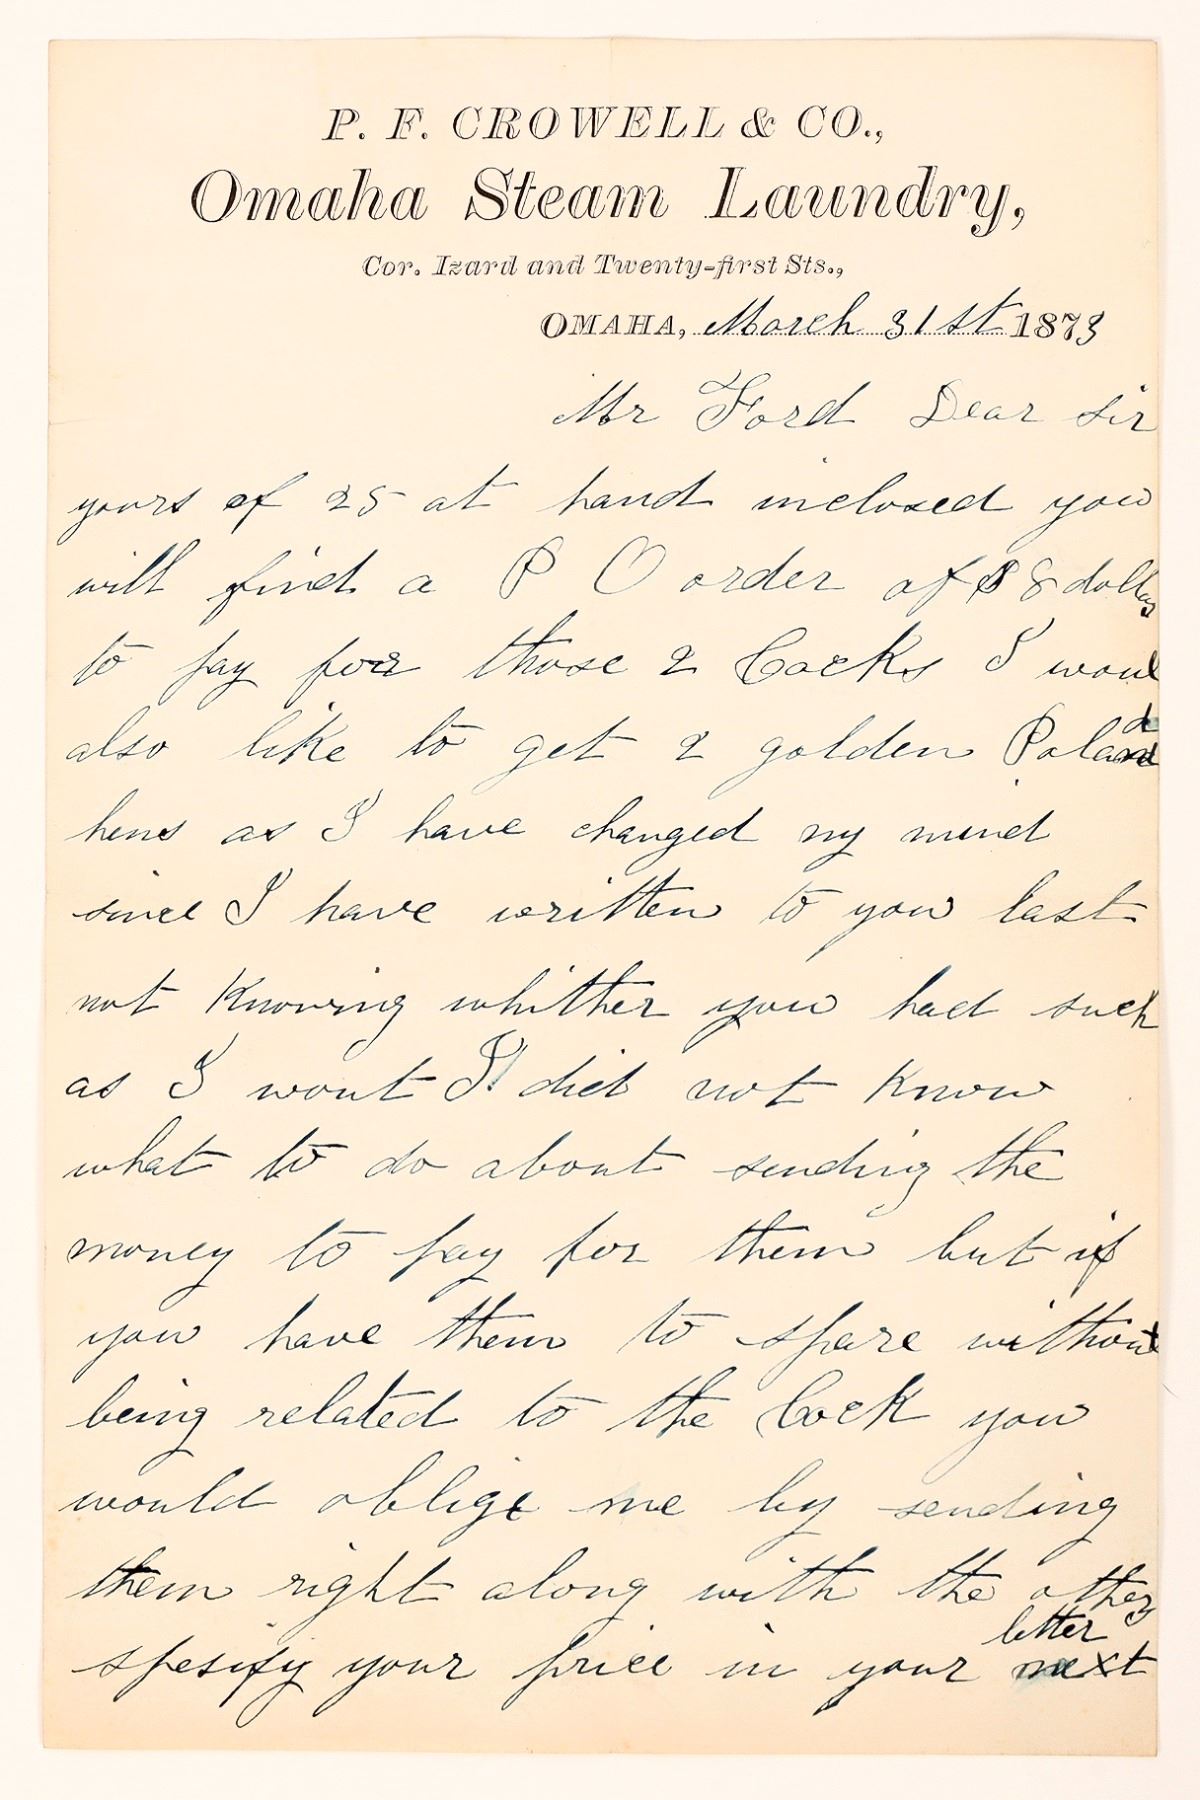 P. F. CROWELL & CO.,
Omaha Steam Laundry,
Cor. Izard and Twenty-first Sts.,
OMAHA, March 31st 1873
Mr Ford Dear sir
yours of 25 at hand inclosed you
will find a P O order of $8 dollars
to pay for those 2 Cocks I would
also like to get 2 golden Poland
hens as I have changed my mind
since I have written to you last
not Knowing whither you had such
as I wont I did not Know
what to do about sending the
money to pay for them but if
you have them to spare without
being related to the Cock you
would oblige me by sending
them right along with the other
letter
spesify your price in your next